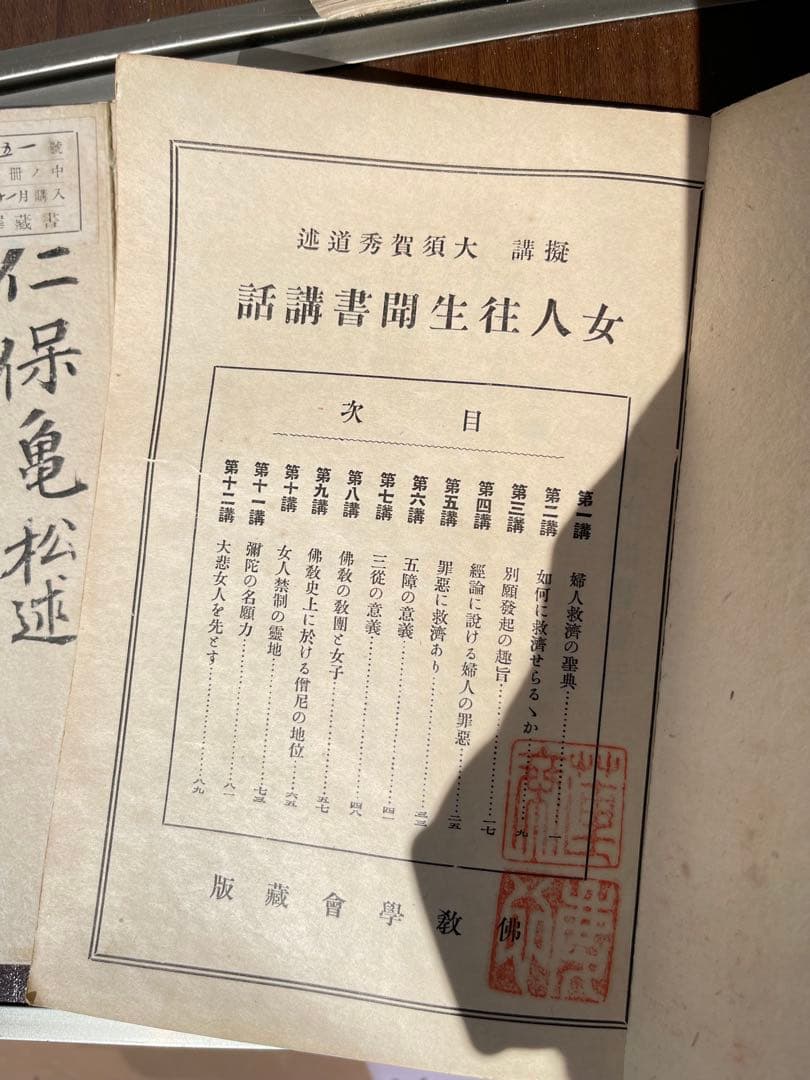 擬講 大須賀秀道述
女人往生聞書講話
目次
第一講 婦人救濟の聖典…………一
第二講 如何に救濟せらるゝか…………九
第三講 別願發起の趣旨…………一七
第四講 經論に說ける婦人の罪惡…………二五
第五講 罪惡に救濟あり…………三三
第六講 五障の意義…………四一
第七講 三從の意義…………四八
第八講 佛敎の敎團と女子…………五七
第九講 佛敎史上に於ける僧尼の地位…………六五
第十講 女人禁制の靈地…………七三
第十一講 彌陀の名願力…………八一
第十二講 大悲女人を先とす…………八九
佛敎學會藏版
五一號
冊ノ中
十一月購入
藏書
仁保亀松述